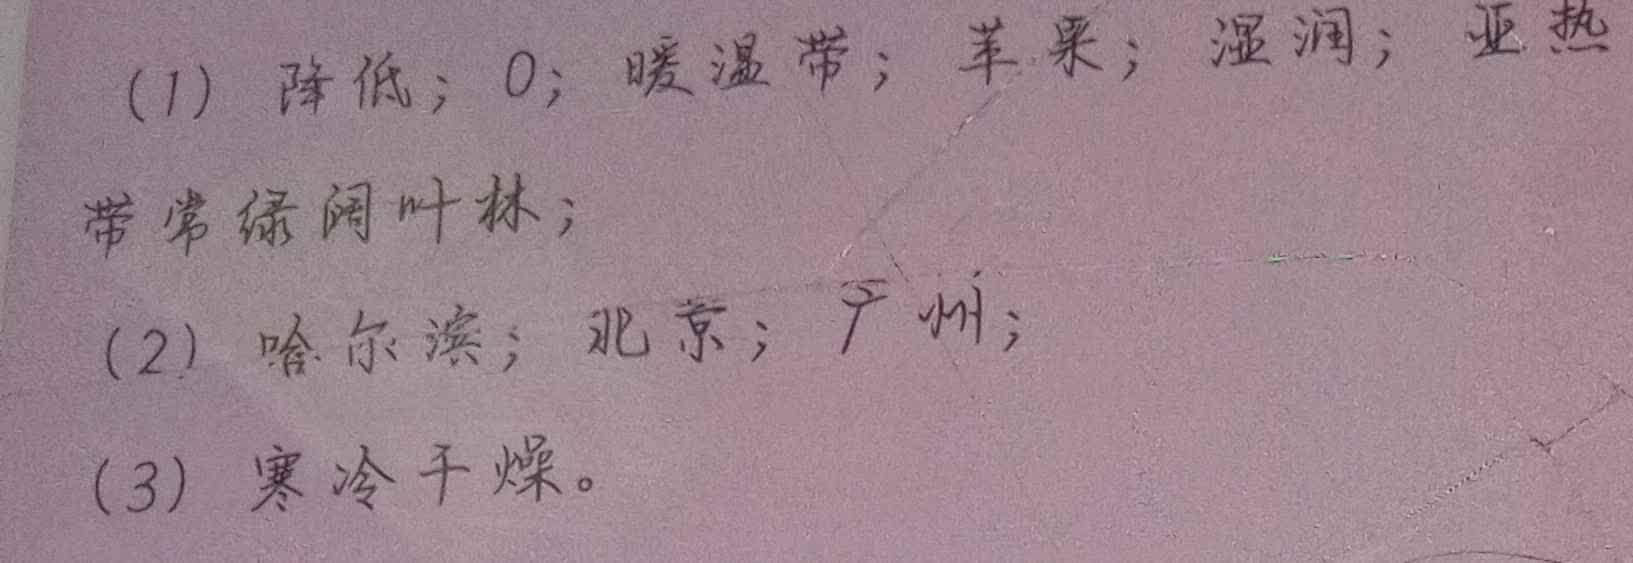 (1) 降低；0；暖温带；苹果；湿润；亚热
带常绿阔叶林；
(2) 哈尔滨；北京；广州；
(3) 寒冷干燥。